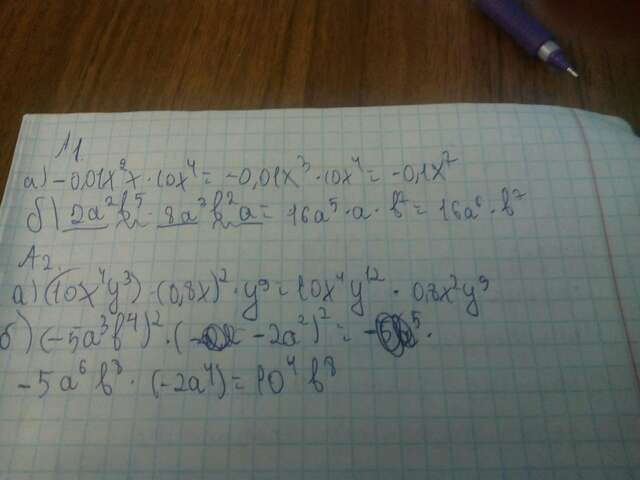 А1.
а) -0,01x²x·10x⁴= -0,01x³·10x⁴= -0,1x⁷
б) 2a²b⁵·8a³b²a= 16a⁵·a·b⁷= 16a⁶·b⁷
А2.
а) (10x⁴y³)·(0,8x)²·y⁹=10x⁴y¹²·0,8x²y⁹
б) (-5a³b⁴)²·(-2a²)²=
-5a⁶b⁸·(-2a⁴)=10⁴b⁸